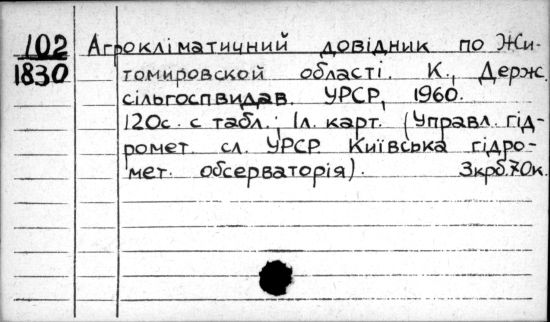 102 Агрокліматичний довідник по Жи-
1830 томировской області. К., Держ.
сільгоспвидав. УРСР, 1960.
120с. с табл.; 1л. карт. (Управл. гід-
ромет. сл. УРСР. Київська гідро-
мет. обсерваторія). 3крб.70к.